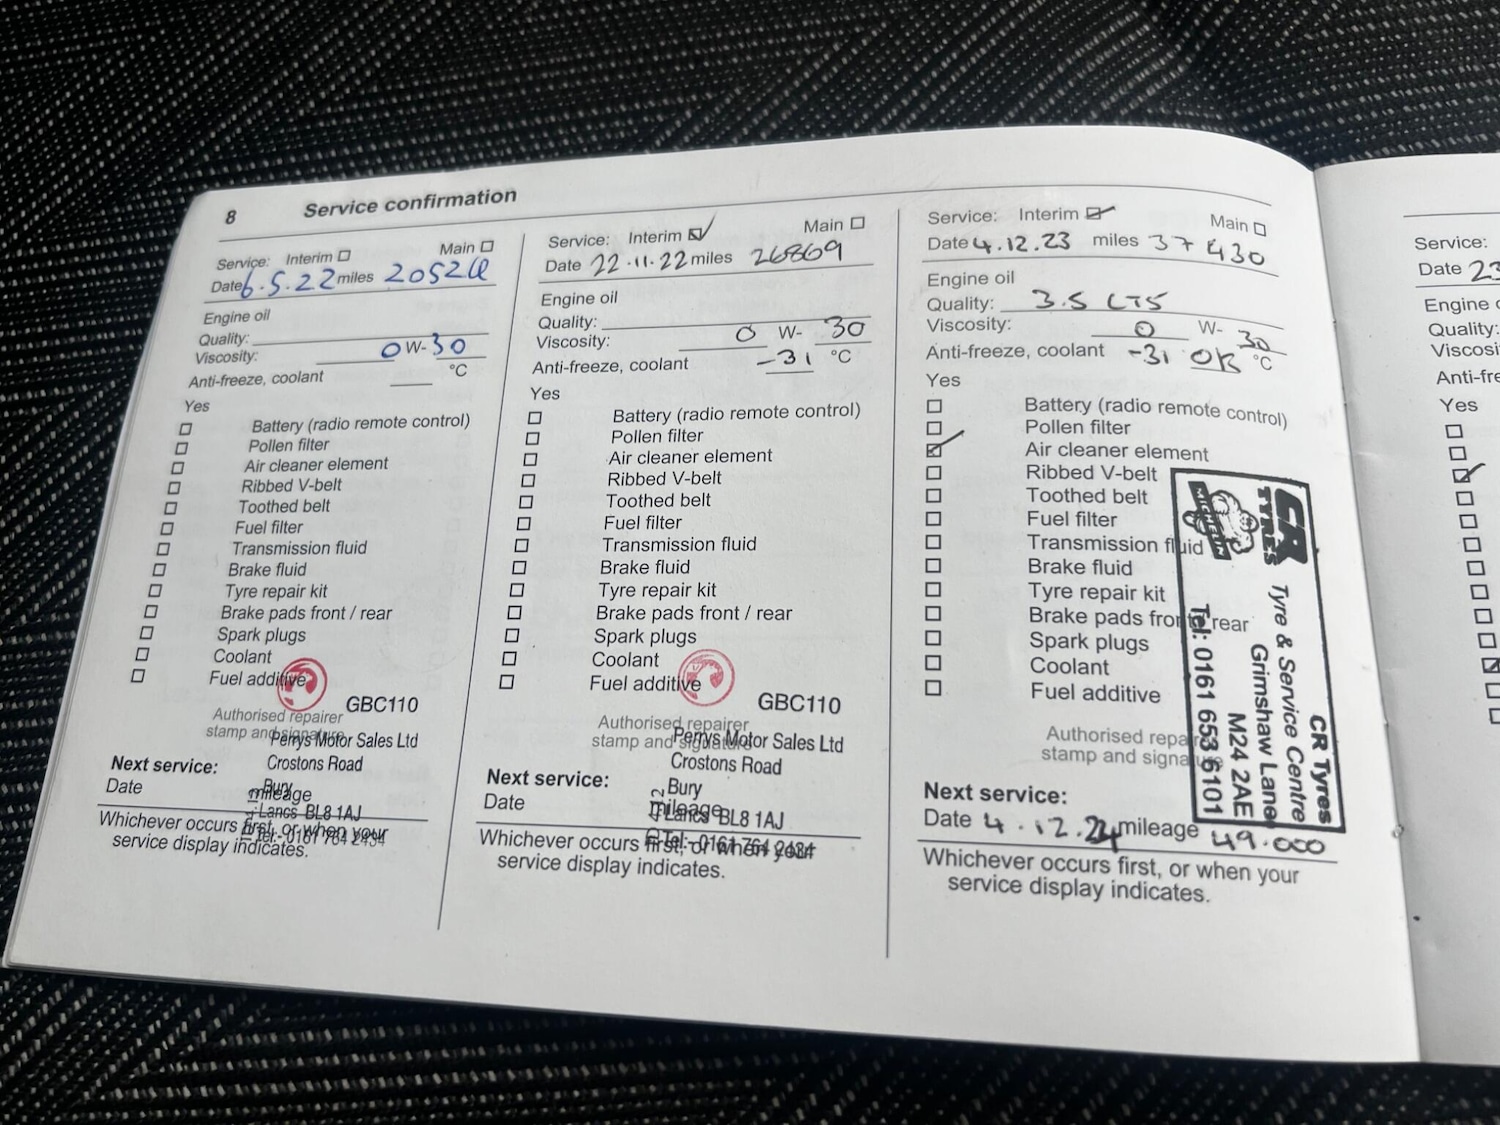 8 Service confirmation
Service: Interim Main
Date 6.5.22 miles
Engine oil
Quality:
Viscosity: 0 W-30
Anti-freeze, coolant °C
Yes
Battery (radio remote control)
Pollen filter
Air cleaner element
Ribbed V-belt
Toothed belt
Fuel filter
Transmission fluid
Brake fluid
Tyre repair kit
Brake pads front / rear
Spark plugs
Coolant
Fuel additive
GBC110
Authorised repairer
stamp and signature
Perrys Motor Sales Ltd
Crostons Road
Bury
Lancs BL8 1AJ
Tel:- 0161 764 2434
Next service:
Date mileage
Whichever occurs first, or when your
service display indicates.
Service: Interim Main
Date 22.11.22 miles 26869
Engine oil
Quality:
Viscosity: 0 W- 30
Anti-freeze, coolant -31 °C
Yes
Battery (radio remote control)
Pollen filter
Air cleaner element
Ribbed V-belt
Toothed belt
Fuel filter
Transmission fluid
Brake fluid
Tyre repair kit
Brake pads front / rear
Spark plugs
Coolant
Fuel additive
GBC110
Authorised repairer
stamp and signature
Perrys Motor Sales Ltd
Crostons Road
Bury
Lancs BL8 1AJ
Tel:- 0161 764 2434
Next service:
Date mileage
Whichever occurs first, or when your
service display indicates.
Service: Interim Main
Date 4.12.23 miles 37430
Engine oil
Quality: 3.5 LTS
Viscosity: 0 W- 30
Anti-freeze, coolant -31 OK °C
Yes
Battery (radio remote control)
Pollen filter
Air cleaner element
Ribbed V-belt
Toothed belt
Fuel filter
Transmission fluid
Brake fluid
Tyre repair kit
Brake pads front / rear
Spark plugs
Coolant
Fuel additive
Authorised repa
stamp and signature
CR TYRES
MICHELIN
CR Tyres
Tyre & Service Centre
Grimshaw Lane
M24 2AE
Tel: 0161 653 6101
Next service:
Date 4.12.24 mileage 49.000
Whichever occurs first, or when your
service display indicates.
Service:
Date 23
Engine
Quality:
Viscosi
Anti-fre
Yes